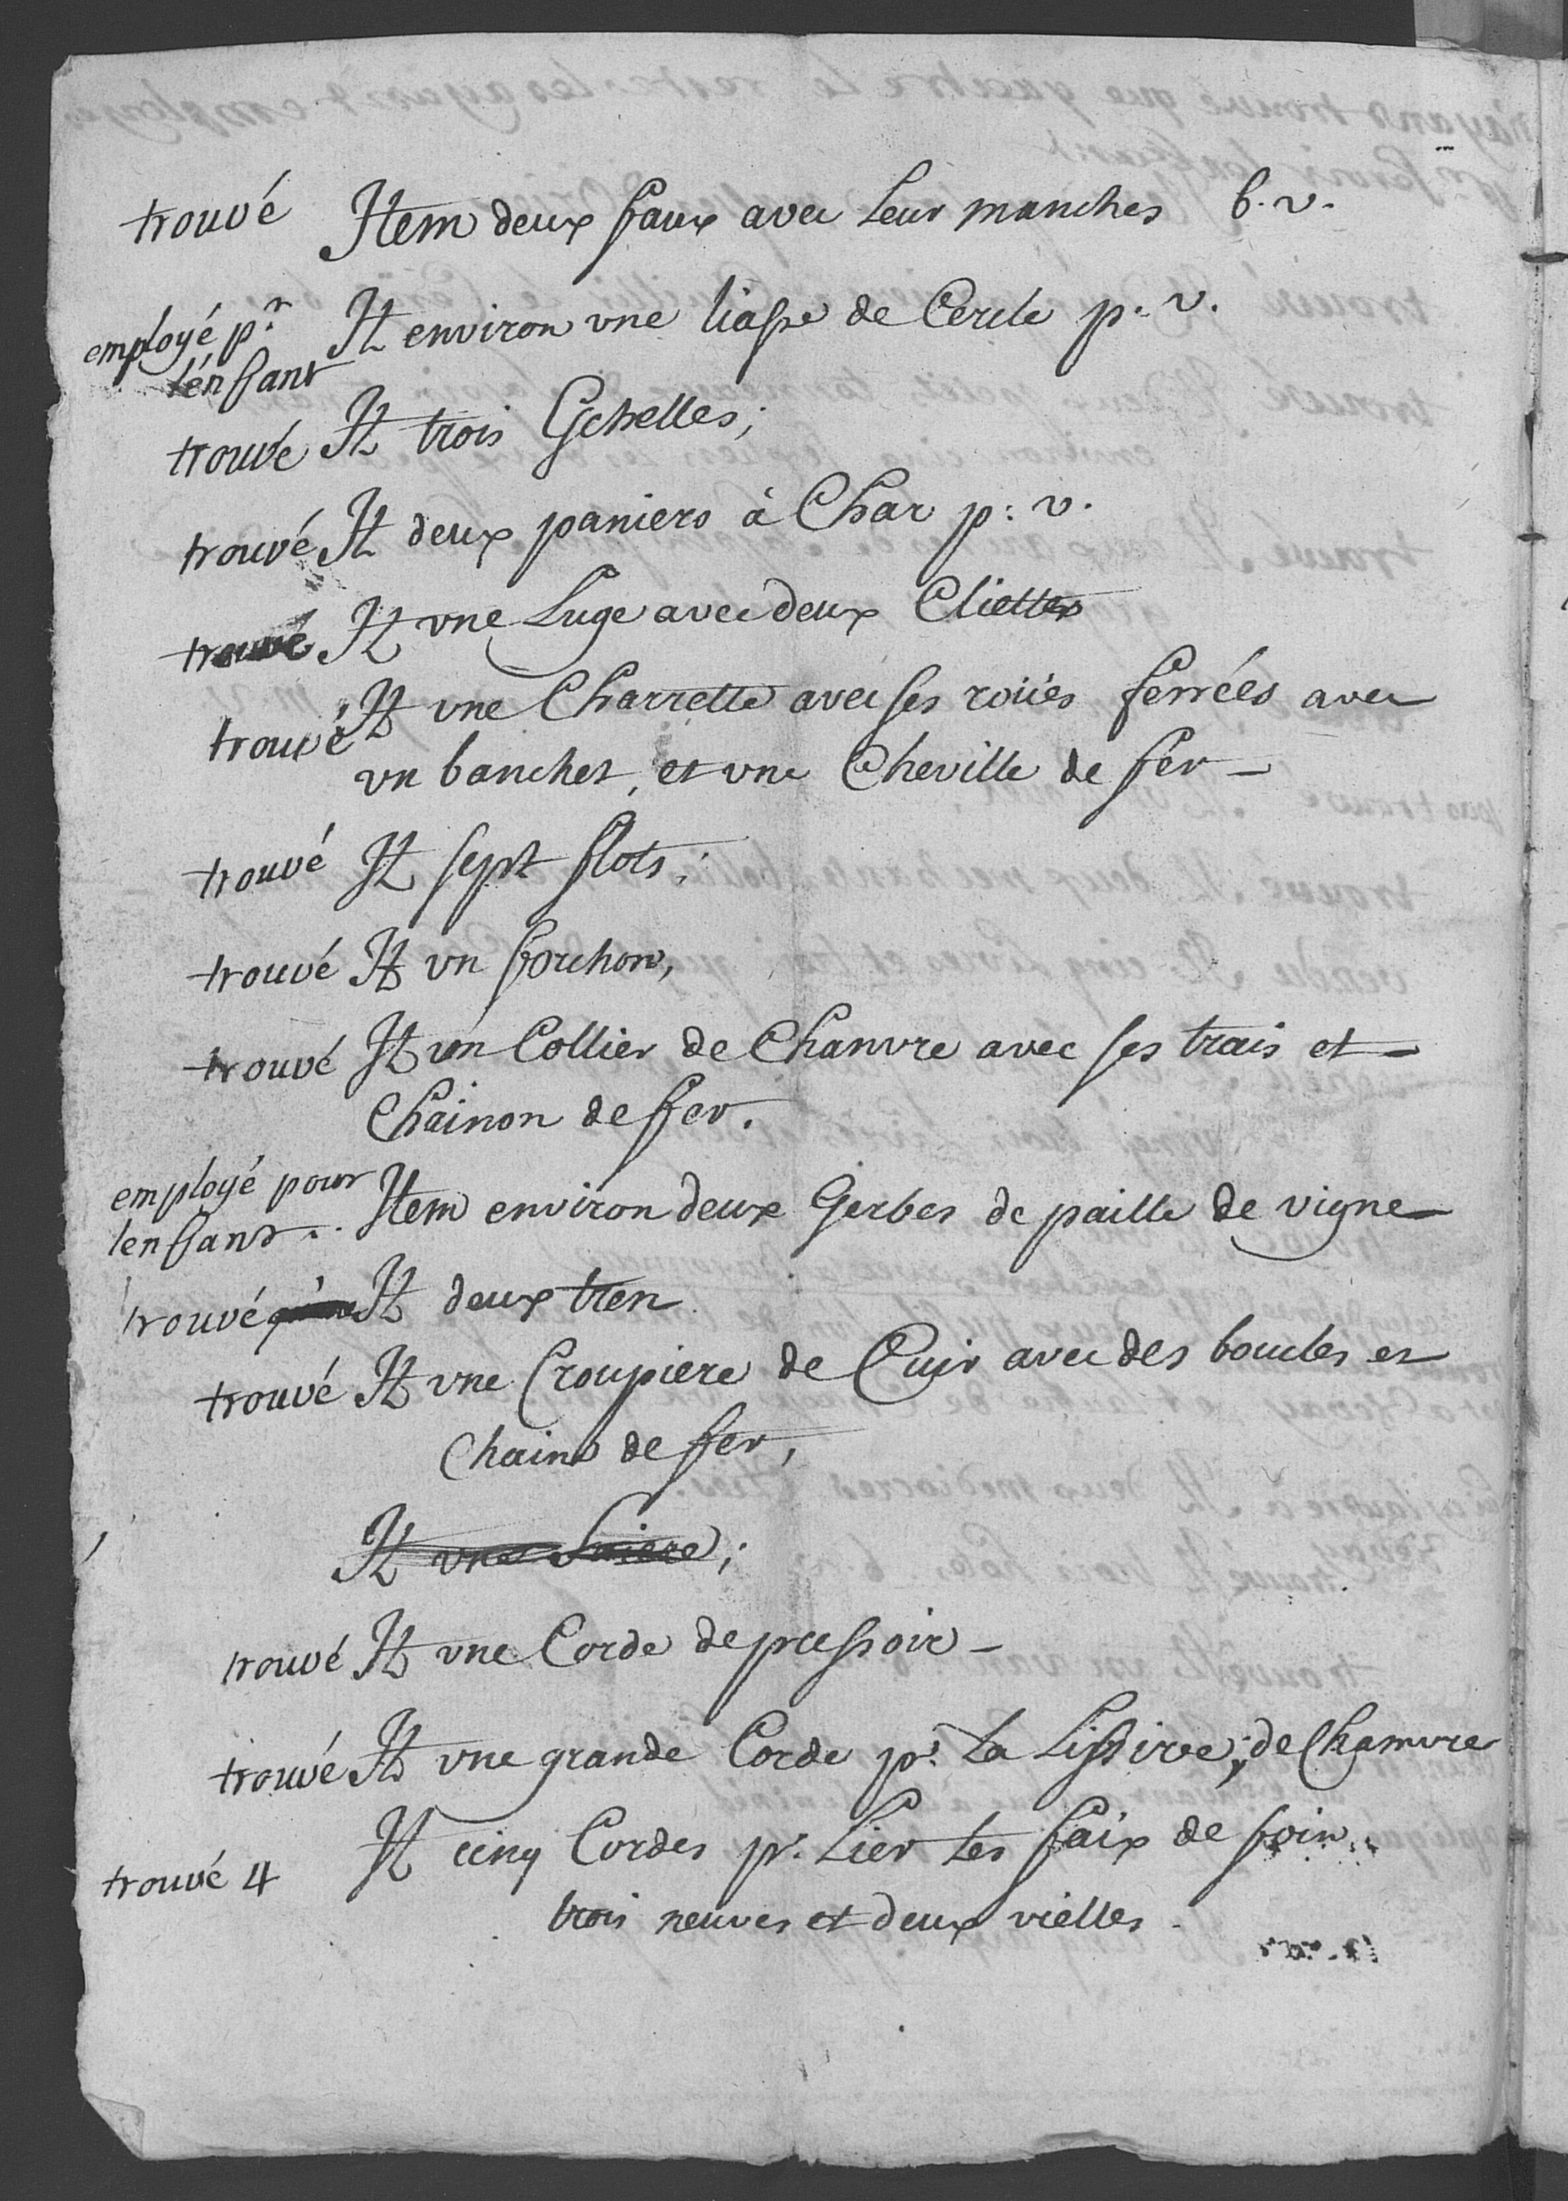 trouvé Item deux faux avec Leur manches b. v.
employé pr. It environ vne liasse de Cercle p. v.
l'enfant
trouvé It trois Echelles;
trouvé It deux paniers à Char p: v.
trouvé It vne Luge avec deux Cliettes
trouvé It vne Charrette avec ses roües ferrées avec
vn banchet, et vne Cheville de fer
trouvé It sept flots;
trouvé It vn fourchon,
trouvé It un Collier de Chanvre avec ses trais et
Chainon de fer.
employé pour Item environ deux Gerbes de paille de vigne
l'enfant..
trouvé It deux tren
trouvé It vne Croupiere de Cuir avec des boucles et
Chaine de fer,
It vne
trouvé It vne Corde de pressoir
trouvé It vne grande Corde pr. La Lissive; de Chamvre
trouvé 4 It cinq Cordes pr. Lier Les faix de foin
trois neuves et deux vielles.